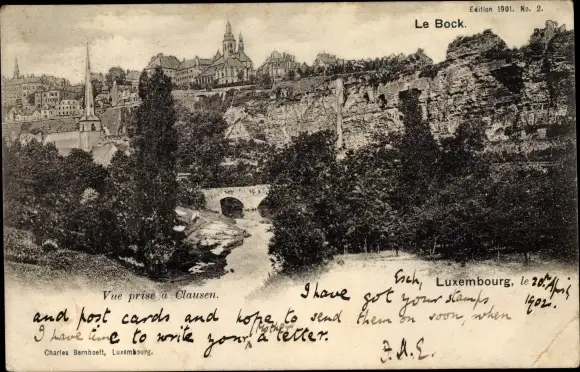 Edition 1901. No. 2.
Le Bock.
Vue prise à Clausen.
Luxembourg, le 20th April
1902.
Esch,
I have got your stamps
and post cards and hope to send them on soon, when
I have time to write your Mother a letter.
F. H. E.
Charles Bernhoeft, Luxembourg.